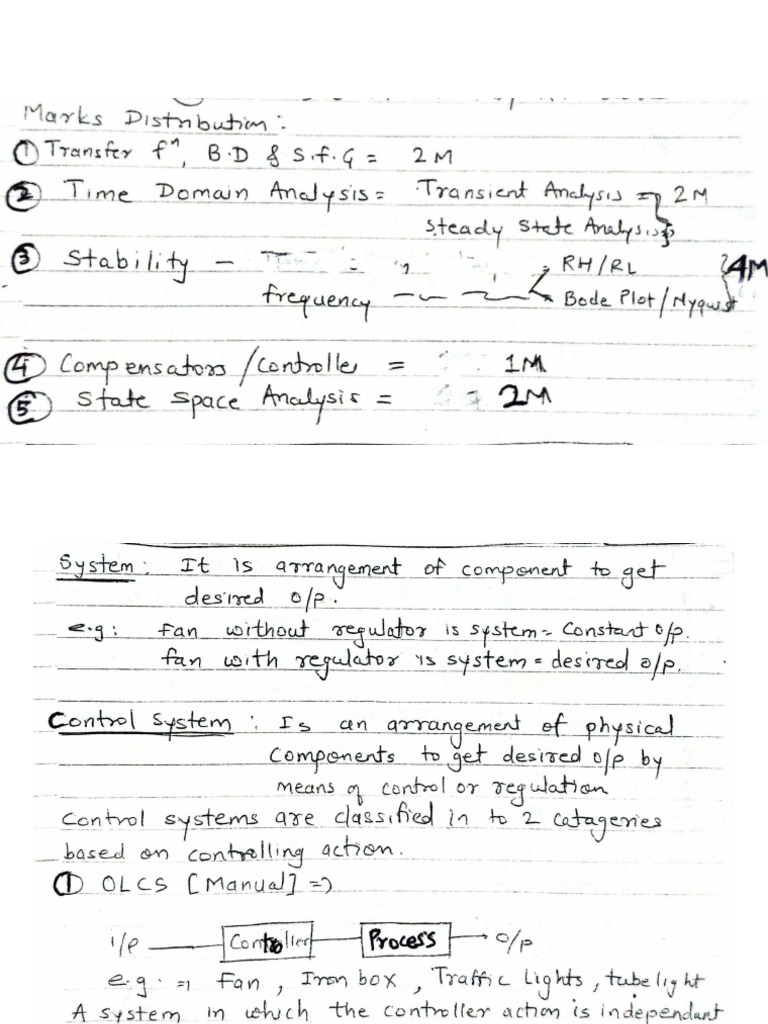 Marks Distribution:
① Transfer fⁿ, B.D & S.f.G = 2M
② Time Domain Analysis = Transient Analysis = 2M
Steady State Analysis
③ Stability - RH/RL 4M
frequency Bode Plot/Nyqust
④ Compensators/Controller = 1M
⑤ State Space Analysis = 2M
System: It is arrangement of component to get
desired o/p.
e.g: fan without regulator is system = Constant o/p.
fan with regulator is system = desired o/p.
Control System: Is an arrangement of physical
Components to get desired o/p by
means of control or regulation
Control systems are classified in to 2 catageries
based on controlling action.
① OLCS [Manual] ⇒
i/p Controller Process o/p
e.g. ⇒ Fan, Iron box, Traffic Lights, tube light
A system in which the controller action is independant